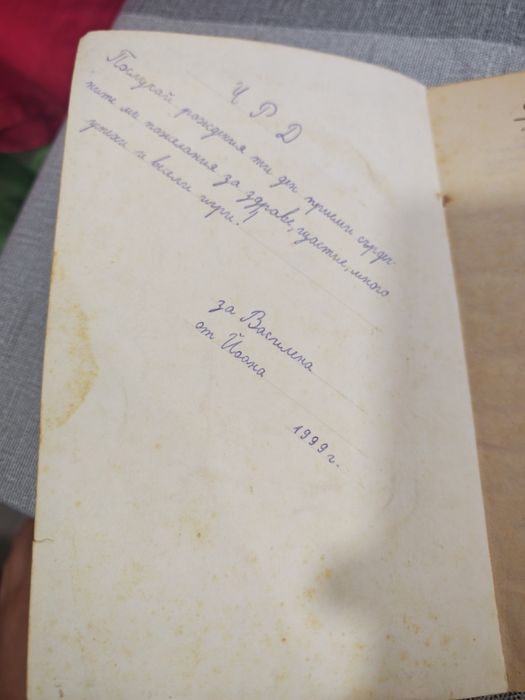 Ч Р Д
По случай рождения ти ден приеми сърдеч-
ните ми пожелания за здраве, щастие, много
успехи и весели игри!
за Василена
от Йоана
1999 г.